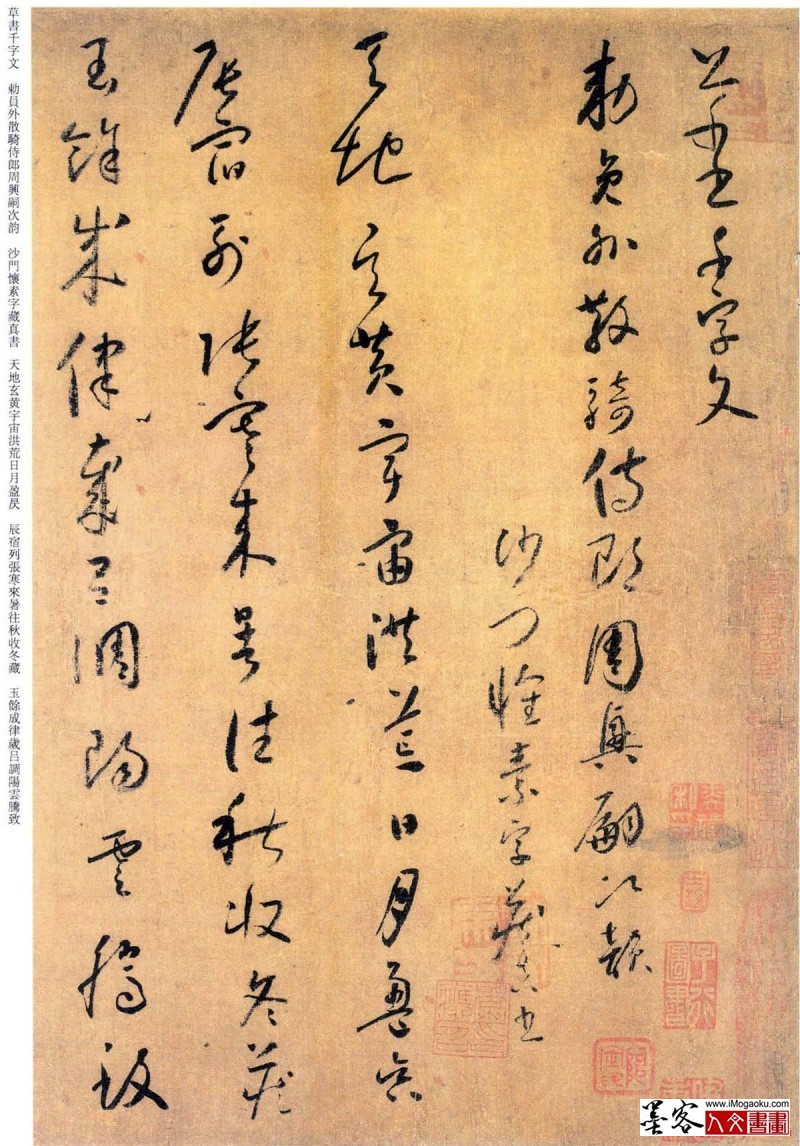 草書千字文
勅員外散騎侍郎周興嗣次韻
沙門懷素字藏真書
天地玄黃宇宙洪荒日月盈昃
辰宿列張寒來暑往秋收冬藏
玉餘成律歲呂調陽雲騰致
草書千字文 勅員外散騎侍郎周興嗣次韵 沙門懷素字藏真書 天地玄黄宇宙洪荒日月盈昃 辰宿列張寒來暑往秋收冬藏 玉餘成律歲吕調陽雲騰致
墨客 www.iMogaoku.com
人文書畫